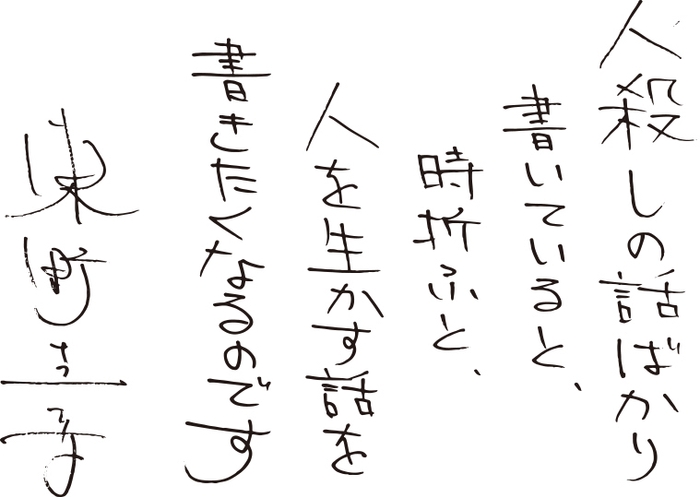 人殺しの話ばかり
書いていると、
時折ふと、
人を生かす話を
書きたくなるのです
東野圭吾